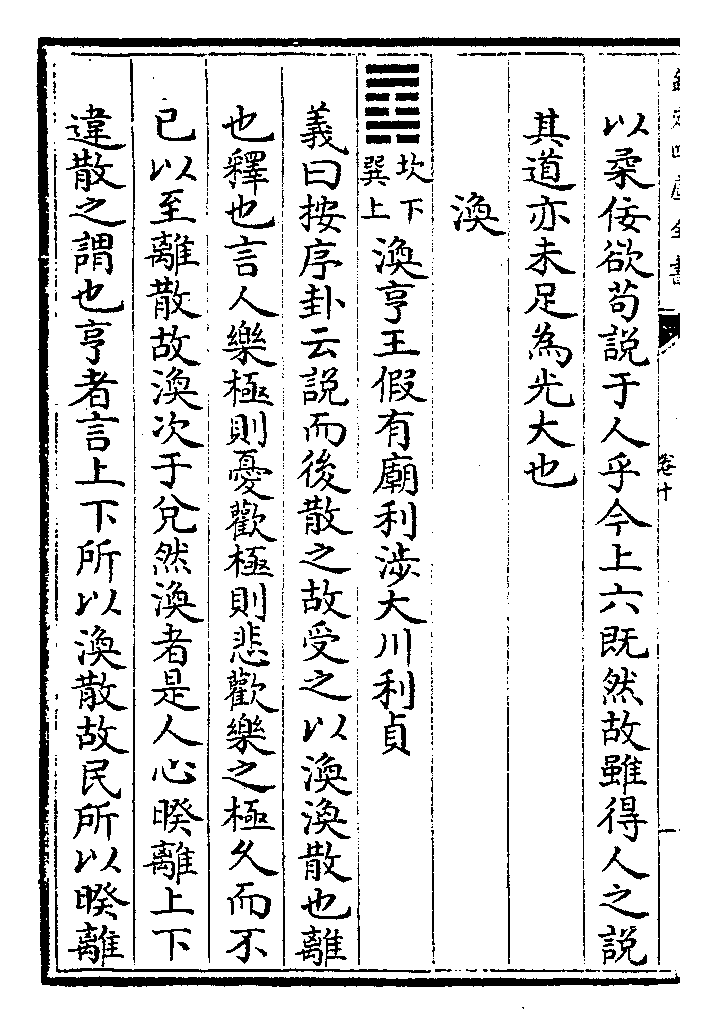 欽定四庫全書
卷十
以柔佞欲苟説于人乎今上六既然故雖得人之説
其道亦未足為光大也
渙
䷺
坎下
巽上
渙亨王假有廟利涉大川利貞
義曰按序卦云説而後散之故受之以渙渙散也離
也釋也言人樂極則憂歡極則悲歡樂之極久而不
已以至離散故渙次于兌然渙者是人心暌離上下
違散之謂也亨者言上下所以渙散故民所以暌離